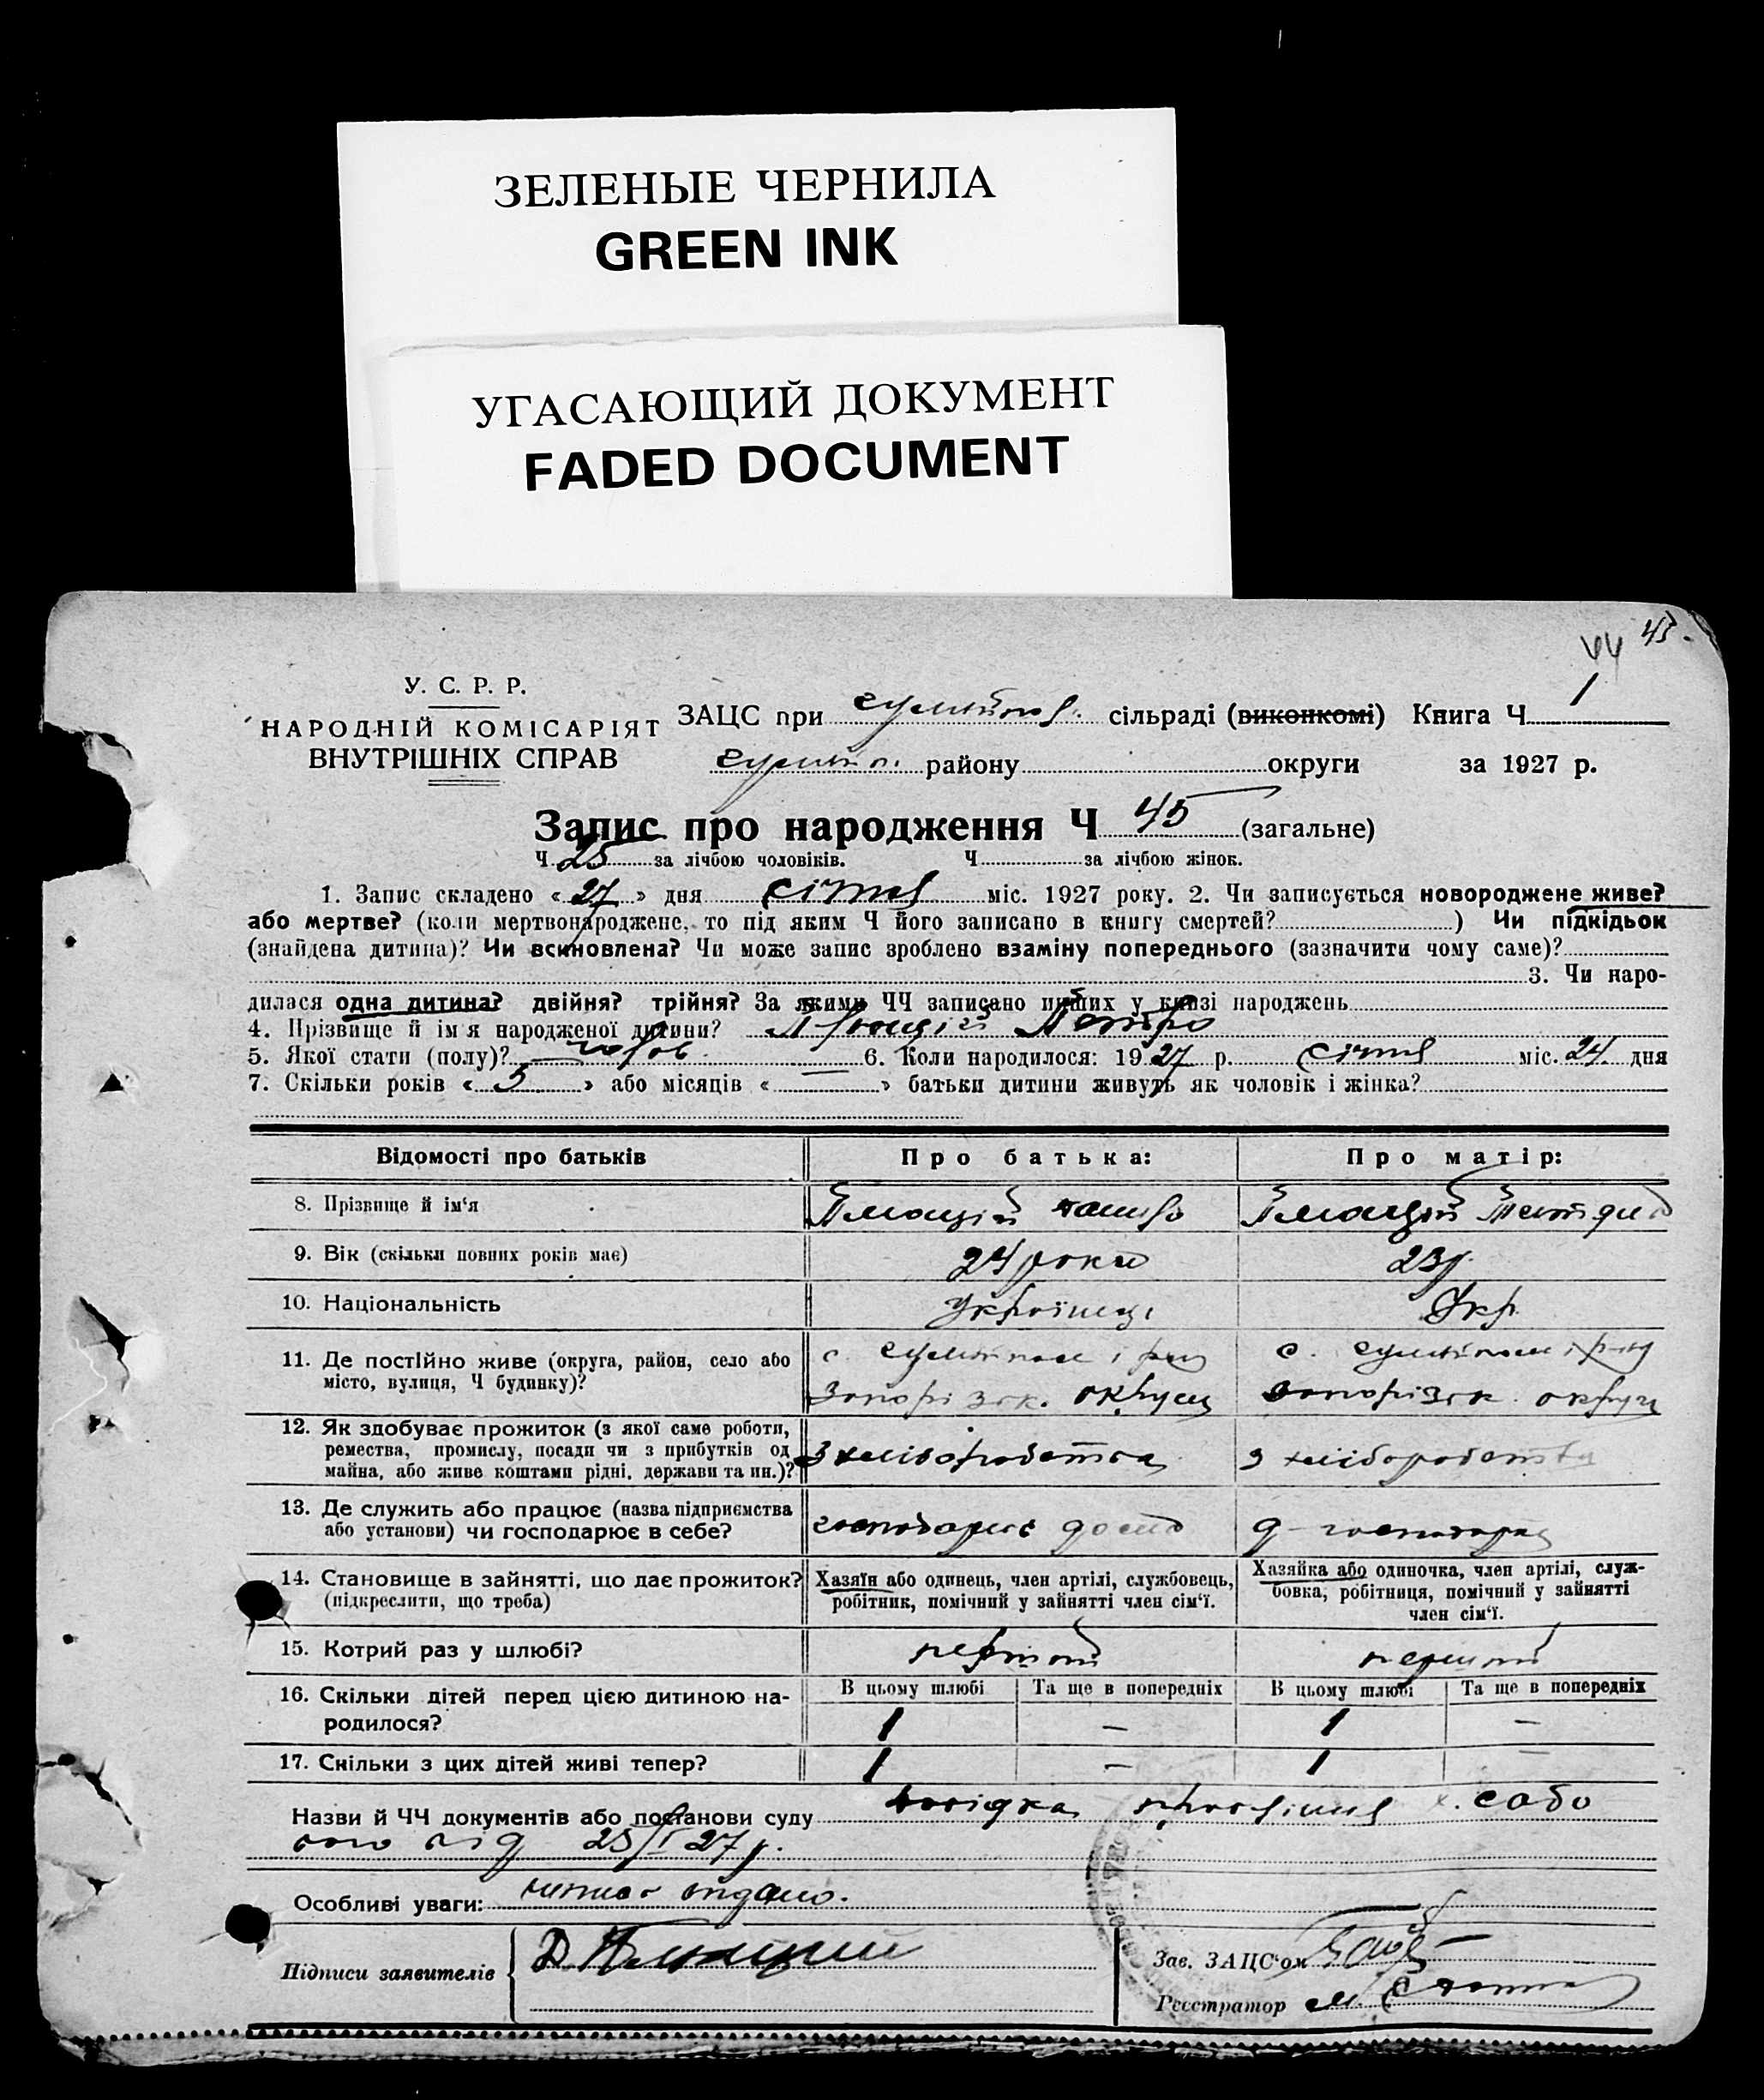 ЗЕЛЕНЫЕ ЧЕРНИЛА
GREEN INK
УГАСАЮЩИЙ ДОКУМЕНТ
FADED DOCUMENT
44 45.
У. С. Р. Р.
НАРОДНІЙ КОМІСАРІЯТ
ВНУТРІШНІХ СПРАВ
ЗАЦС при сільраді (виконкомі) Книга Ч 1
району округи за 1927 р.
Запис про народження Ч 45 (загальне)
Ч 25 за лічбою чоловіків. Ч за лічбою жінок.
1. Запис складено « 27 » дня січня міс. 1927 року. 2. Чи записується новороджене живе?
або мертве? (коли мертвонароджене, то під яким Ч його записано в книгу смертей? ) Чи підкідьок
(знайдена дитина)? Чи всиновлена? Чи може запис зроблено взаміну попереднього (зазначити чому саме)?
3. Чи наро-
дилася одна дитина? двійня? трійня? За якими ЧЧ записано инших у книзі народжень
4. Прізвище й ім'я народженої дитини? Петро
5. Якої стати (полу)? чолов. 6. Коли народилося: 1927 р. січня міс. 24 дня
7. Скільки років « 5 » або місяців « — » батьки дитини живуть як чоловік і жінка?
Відомості про батьків
Про батька:
Про матір:
8. Прізвище й ім'я
9. Вік (скільки повних років має) 24 роки 23 р.
10. Національність Українец Укр.
11. Де постійно живе (округа, район, село або
місто, вулиця, Ч будинку)?
с. Запорізьк. округи
с. Запорізьк. округи
12. Як здобуває прожиток (з якої саме роботи,
ремества, промислу, посади чи з прибутків од
майна, або живе коштами рідні, держави та ин.)?
З хліборобства
з хліборобства
13. Де служить або працює (назва підприємства
або установи) чи господарює в себе?
господарює дома
д-господарка
14. Становище в зайнятті, що дає прожиток?
(підкреслити, що треба)
Хазяїн або одинець, член артілі, службовець,
робітник, помічний у зайнятті член сім'ї.
Хазяйка або одиночка, член артілі, служ-
бовка, робітниця, помічний у зайнятті
член сім'ї.
15. Котрий раз у шлюбі? перший перший
16. Скільки дітей перед цією дитиною на-
родилося?
В цьому шлюбі Та ще в попередніх В цьому шлюбі Та ще в попередніх
1 — 1 —
17. Скільки з цих дітей живі тепер? 1 — 1 —
Назви й ЧЧ документів або постанови суду довідка
від 25/I 27 р.
Особливі уваги: видано.
Підписи заявителів
Зав. ЗАЦС'ом
Реєстратор